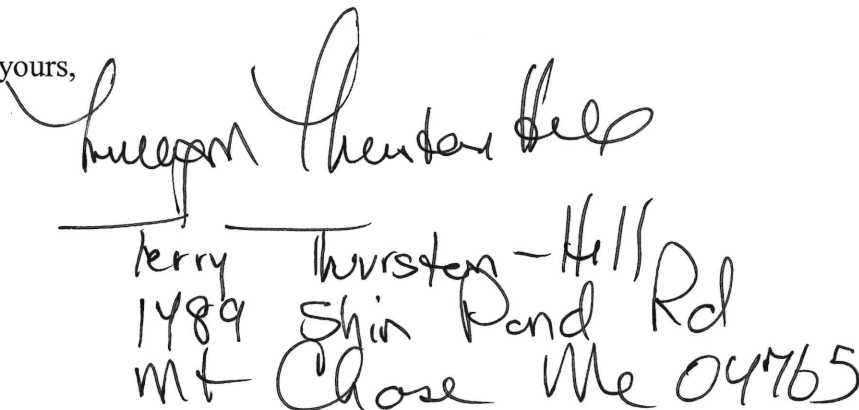 yours,
Thurston Hill
Terry Thurston-Hill
1489 Shin Pond Rd
Mt Chase Me 04765